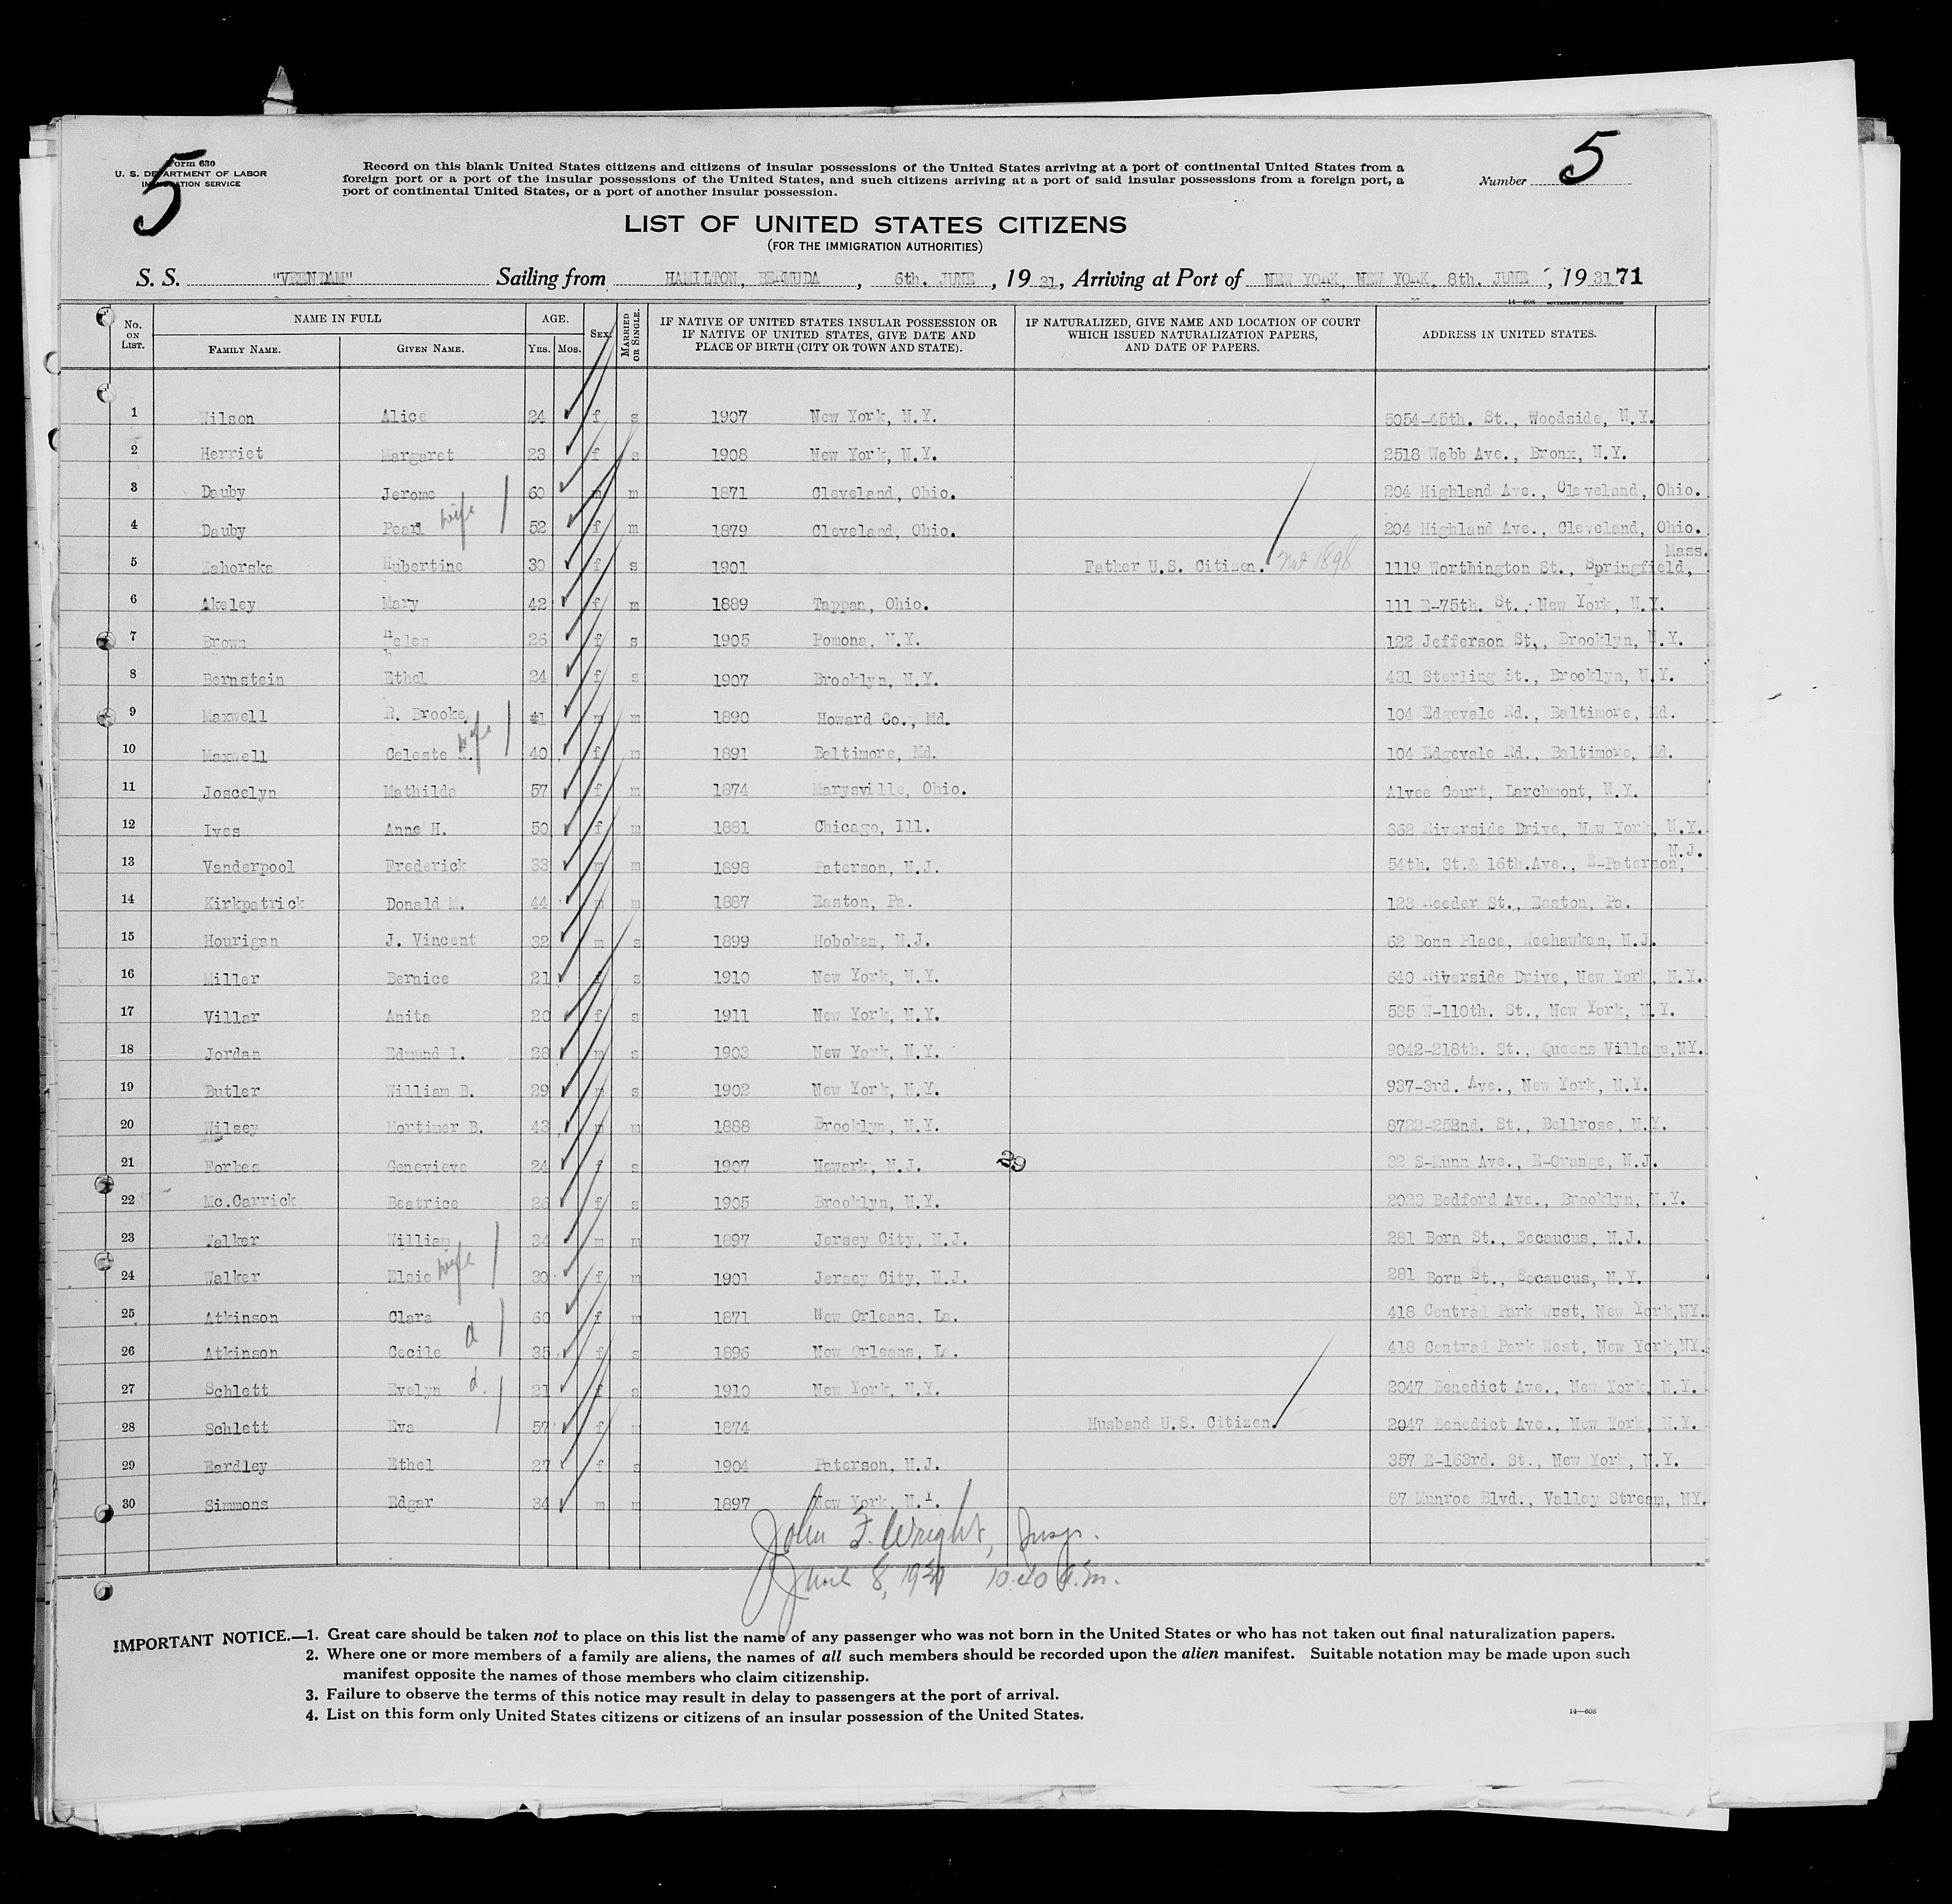 5
Form 630
U. S. DEPARTMENT OF LABOR
IMMIGRATION SERVICE
Record on this blank United States citizens and citizens of insular possessions of the United States arriving at a port of continental United States from a
foreign port or a port of the insular possessions of the United States, and such citizens arriving at a port of said insular possessions from a foreign port, a
port of continental United States, or a port of another insular possession.
Number 5
LIST OF UNITED STATES CITIZENS
(FOR THE IMMIGRATION AUTHORITIES)
S. S. "VEENDAM" Sailing from HAMILTON, BERMUDA, 6th. JUNE, 19 31, Arriving at Port of NEW YORK, NEW YORK. 8th. JUNE, 19 31 71
14—608 GOVERNMENT PRINTING OFFICE
No. ON LIST. NAME IN FULL AGE. SEX. MARRIED OR SINGLE. IF NATIVE OF UNITED STATES INSULAR POSSESSION OR IF NATIVE OF UNITED STATES, GIVE DATE AND PLACE OF BIRTH (CITY OR TOWN AND STATE). IF NATURALIZED, GIVE NAME AND LOCATION OF COURT WHICH ISSUED NATURALIZATION PAPERS, AND DATE OF PAPERS. ADDRESS IN UNITED STATES.
FAMILY NAME. GIVEN NAME. YRS. MOS.
1 Wilson Alice 24 f s 1907 New York, N.Y. 5054-45th. St., Woodside, N.Y.
2 Herriet Margaret 23 f s 1908 New York, N.Y. 2518 Webb Ave., Bronx, N.Y.
3 Dauby Jerome 60 m m 1871 Cleveland, Ohio. 204 Highland Ave., Cleveland, Ohio.
4 Dauby Pearl wife 52 f m 1879 Cleveland, Ohio. 204 Highland Ave., Cleveland, Ohio.
5 Zahorska Hubertine 30 f s 1901 Father U.S. Citizen. Nat 1898 1119 Worthington St., Springfield, Mass.
6 Akeley Mary 42 f m 1889 Tappan, Ohio. 111 E-75th. St., New York, N.Y.
7 Brown Helen 26 f s 1905 Pomona, N.Y. 122 Jefferson St,, Brooklyn, N.Y.
8 Bernstein Ethel 24 f s 1907 Brooklyn, N.Y. 431 Sterling St., Brooklyn, N.Y.
9 Maxwell R. Brooke 41 m m 1890 Howard Co., Md. 104 Edgevale Rd., Baltimore, Md.
10 Maxwell Celeste wife 40 f m 1891 Baltimore, Md. 104 Edgevale Rd., Baltimore, Md.
11 Joscelyn Mathilda 57 f m 1874 Marysville, Ohio. Alvee Court, Larchmont, N.Y.
12 Ives Anne H. 50 f m 1881 Chicago, Ill. 362 Riverside Drive, New York, N.Y.
13 Vanderpool Frederick 33 m m 1898 Paterson, N.J. 54th. St.& 16th.Ave., E-Paterson, N.J.
14 Kirkpatrick Donald M. 44 m m 1887 Easton, Pa. 123 Reeder St., Easton, Pa.
15 Hourigan J. Vincent 32 m s 1899 Hoboken, N.J. 62 Bonn Place, Weehawken, N.J.
16 Miller Bernice 21 f s 1910 New York, N.Y. 640 Riverside Drive, New York, N.Y.
17 Villar Anita 20 f s 1911 New York, N.Y. 535 W-110th. St., New York, N.Y.
18 Jordan Edmund I. 28 m s 1903 New York, N.Y. 9042-218th. St., Queens Village,NY.
19 Butler William B. 29 m s 1902 New York, N.Y. 937-3rd. Ave., New York, N.Y.
20 Wilsey Mortimer B. 43 m m 1888 Brooklyn, N.Y. 8722-252nd. St., Bellrose, N.Y.
21 Forbes Genevieve 24 f s 1907 Newark, N.J. 29 32 S-Munn Ave., E-Orange, N.J.
22 Mc.Carrick Beatrice 26 f s 1905 Brooklyn, N.Y. 2023 Bedford Ave., Brooklyn, N.Y.
23 Walker William 34 m m 1897 Jersey City, N.J. 281 Born St., Secaucus, N.J.
24 Walker Elsie wife 30 f m 1901 Jersey City, N.J. 281 Born St., Secaucus, N.Y.
25 Atkinson Clara 60 f m 1871 New Orleans, La. 418 Central Park West, New York,NY.
26 Atkinson Cecile d 35 f s 1896 New Orleans, La. 418 Central Park West, New York,NY.
27 Schlett Evelyn d. 21 f s 1910 New York, N.Y. 2047 Benedict Ave., New York, N.Y.
28 Schlett Eva 57 f m 1874 Husband U.S. Citizen. 2047 Benedict Ave., New York, N.Y.
29 Eardley Ethel 27 f s 1904 Paterson, N.J. 357 E-163rd. St., New York, N.Y.
30 Simmons Edgar 34 m m 1897 New York, N.Y. 87 Munroe Blvd., Valley Stream, NY.
John F. Wright, Insp.
June 8, 1931 10.40 a.m.
IMPORTANT NOTICE.—1. Great care should be taken not to place on this list the name of any passenger who was not born in the United States or who has not taken out final naturalization papers.
2. Where one or more members of a family are aliens, the names of all such members should be recorded upon the alien manifest. Suitable notation may be made upon such
manifest opposite the names of those members who claim citizenship.
3. Failure to observe the terms of this notice may result in delay to passengers at the port of arrival.
4. List on this form only United States citizens or citizens of an insular possession of the United States.
14—608